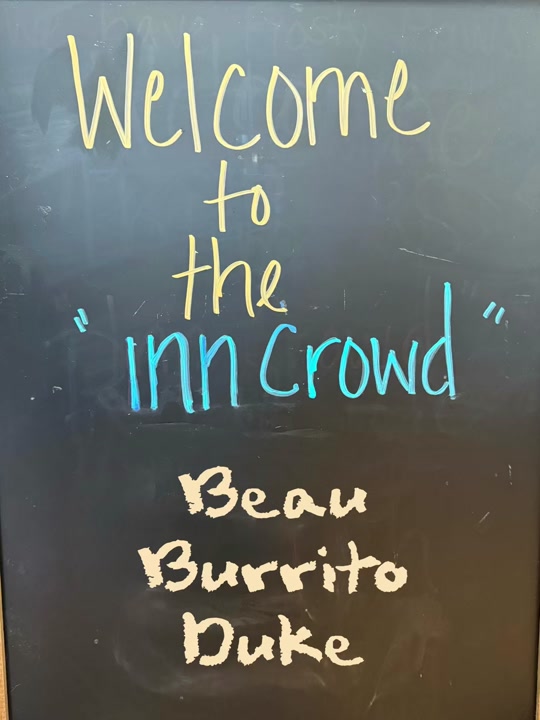 Welcome
to
the
"inn crowd"
Beau
Burrito
Duke